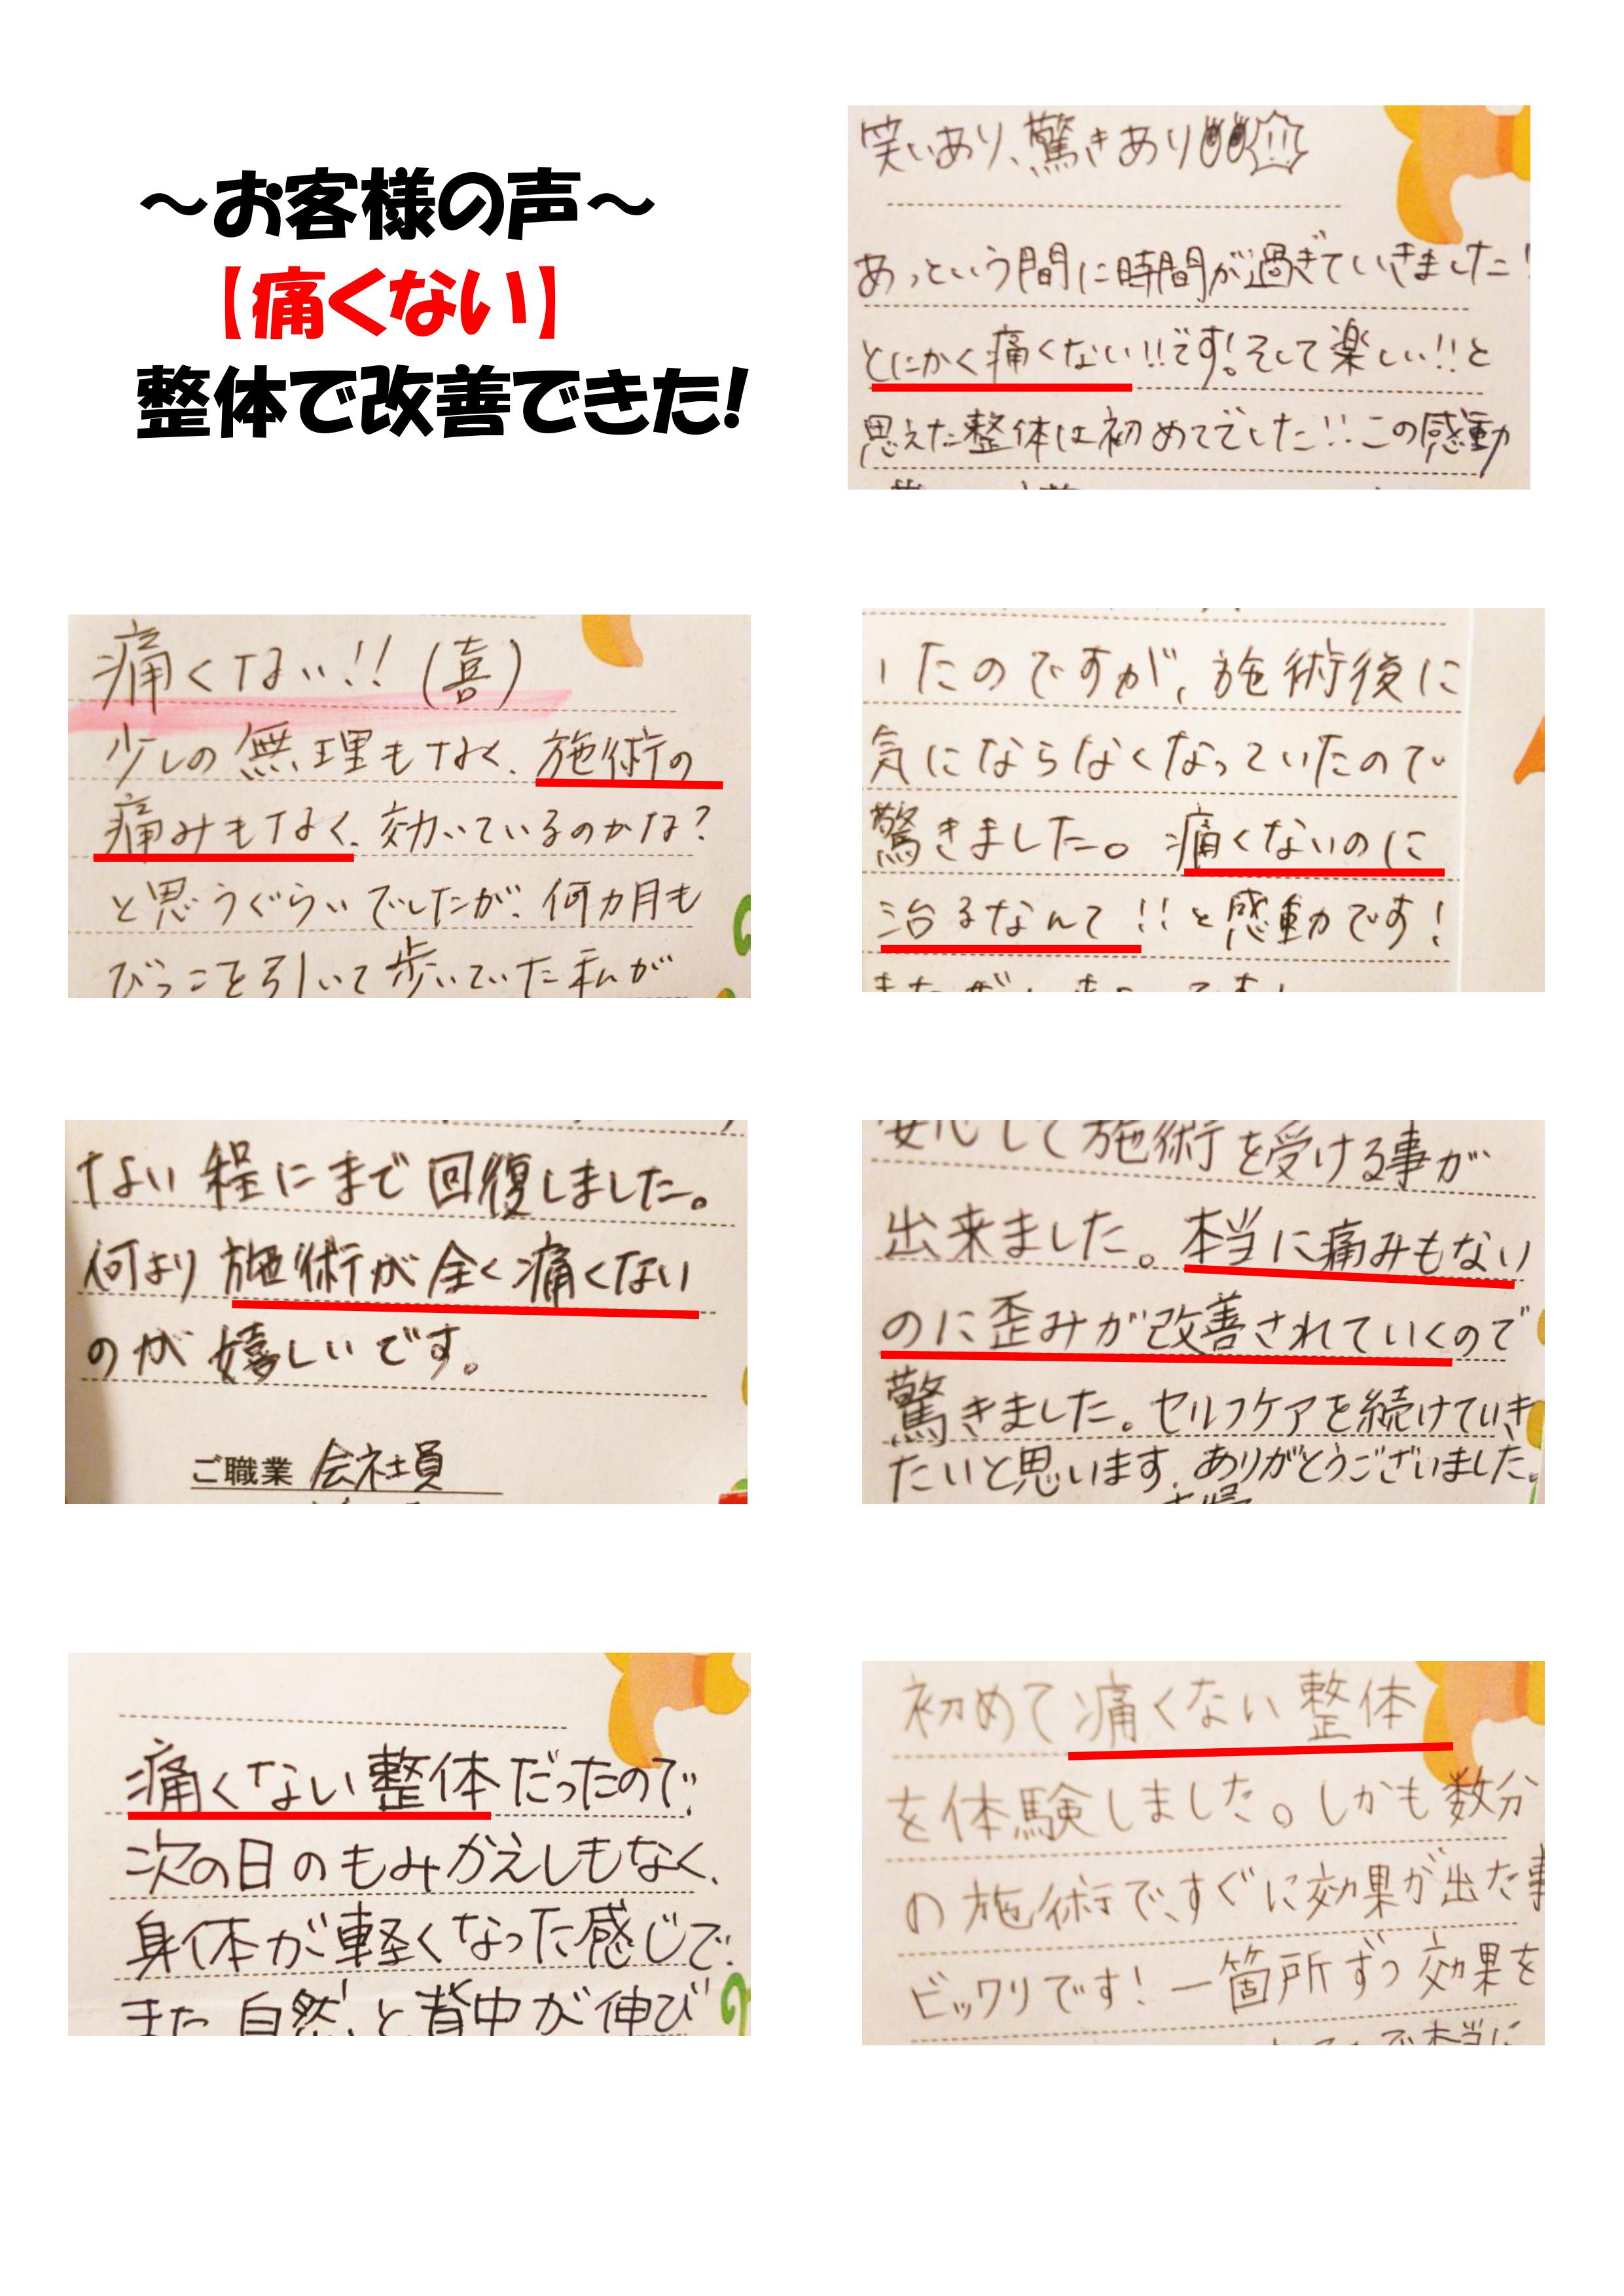 ～お客様の声～
【痛くない】
整体で改善できた!
笑いあり、驚きあり
あっという間に時間が過ぎていきました!
とにかく痛くない!!です!。そして楽しい!!と
思えた整体は初めてでした!!この感動
痛くない!!(喜)
少しの無理もなく、施術の
痛みもなく、効いているのかな?
と思うぐらいでしたが、何カ月も
びっこを引いて歩いていた私が
したのですが、施術後に
気にならなくなっていたので
驚きました。痛くないのに
治るなんて!!と感動です!
ない程にまで回復しました。
何より施術が全く痛くない
のが嬉しいです。
ご職業 会社員
安心して施術を受ける事が
出来ました。本当に痛みもない
のに歪みが改善されていくので
驚きました。セルフケアを続けていき
たいと思います。ありがとうございました。
痛くない整体だったので、
次の日のもみかえしもなく、
身体が軽くなった感じで、
また自然と背中が伸び
初めて痛くない整体
を体験しました。しかも数分
の施術で、すぐに効果が出た事
ビックリです!一箇所ずつ効果を